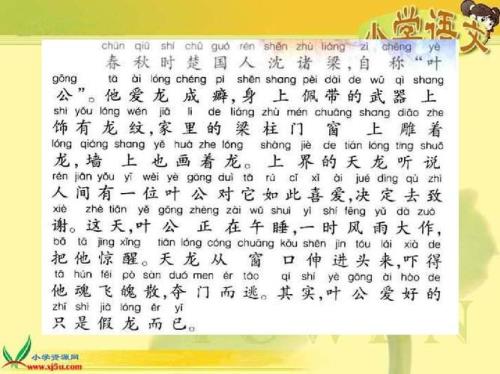 小学语文
chūn qiū shí chǔ guó rén shěn zhū liáng zì chēng yè
春秋时楚国人沈诸梁,自称“叶
gōng tā ài lóng chéng pǐ shēn shang pèi dài de wǔ qì shang
公”。他爱龙成癖,身上佩带的武器上
shì yǒu lóng wén jiā li de liáng zhù mén chuāng shang diāo zhe
饰有龙纹,家里的梁柱门窗上雕着
lóng qiáng shang yě huà zhe lóng shàng jiè de tiān lóng tīng shuō
龙,墙上也画着龙。上界的天龙听说
rén jiān yǒu yī wèi yè gōng duì tā rú cǐ xǐ ài jué dìng qù zhì
人间有一位叶公对它如此喜爱,决定去致
xiè zhè tiān yè gōng zhèng zài wǔ shuì yì shí fēng yǔ dà zuò
谢。这天,叶公正在午睡,一时风雨大作,
bǎ tā jīng xǐng tiān lóng cóng chuāng kǒu shēn jìn tóu lái xià de
把他惊醒。天龙从窗口伸进头来,吓得
tā hún fēi pò sàn duó mén ér táo qí shí yè gōng ài hào de
他魂飞魄散,夺门而逃。其实,叶公爱好的
zhǐ shì jiǎ lóng ér yǐ
只是假龙而已。
小学资源网
http://www.xj5u.com